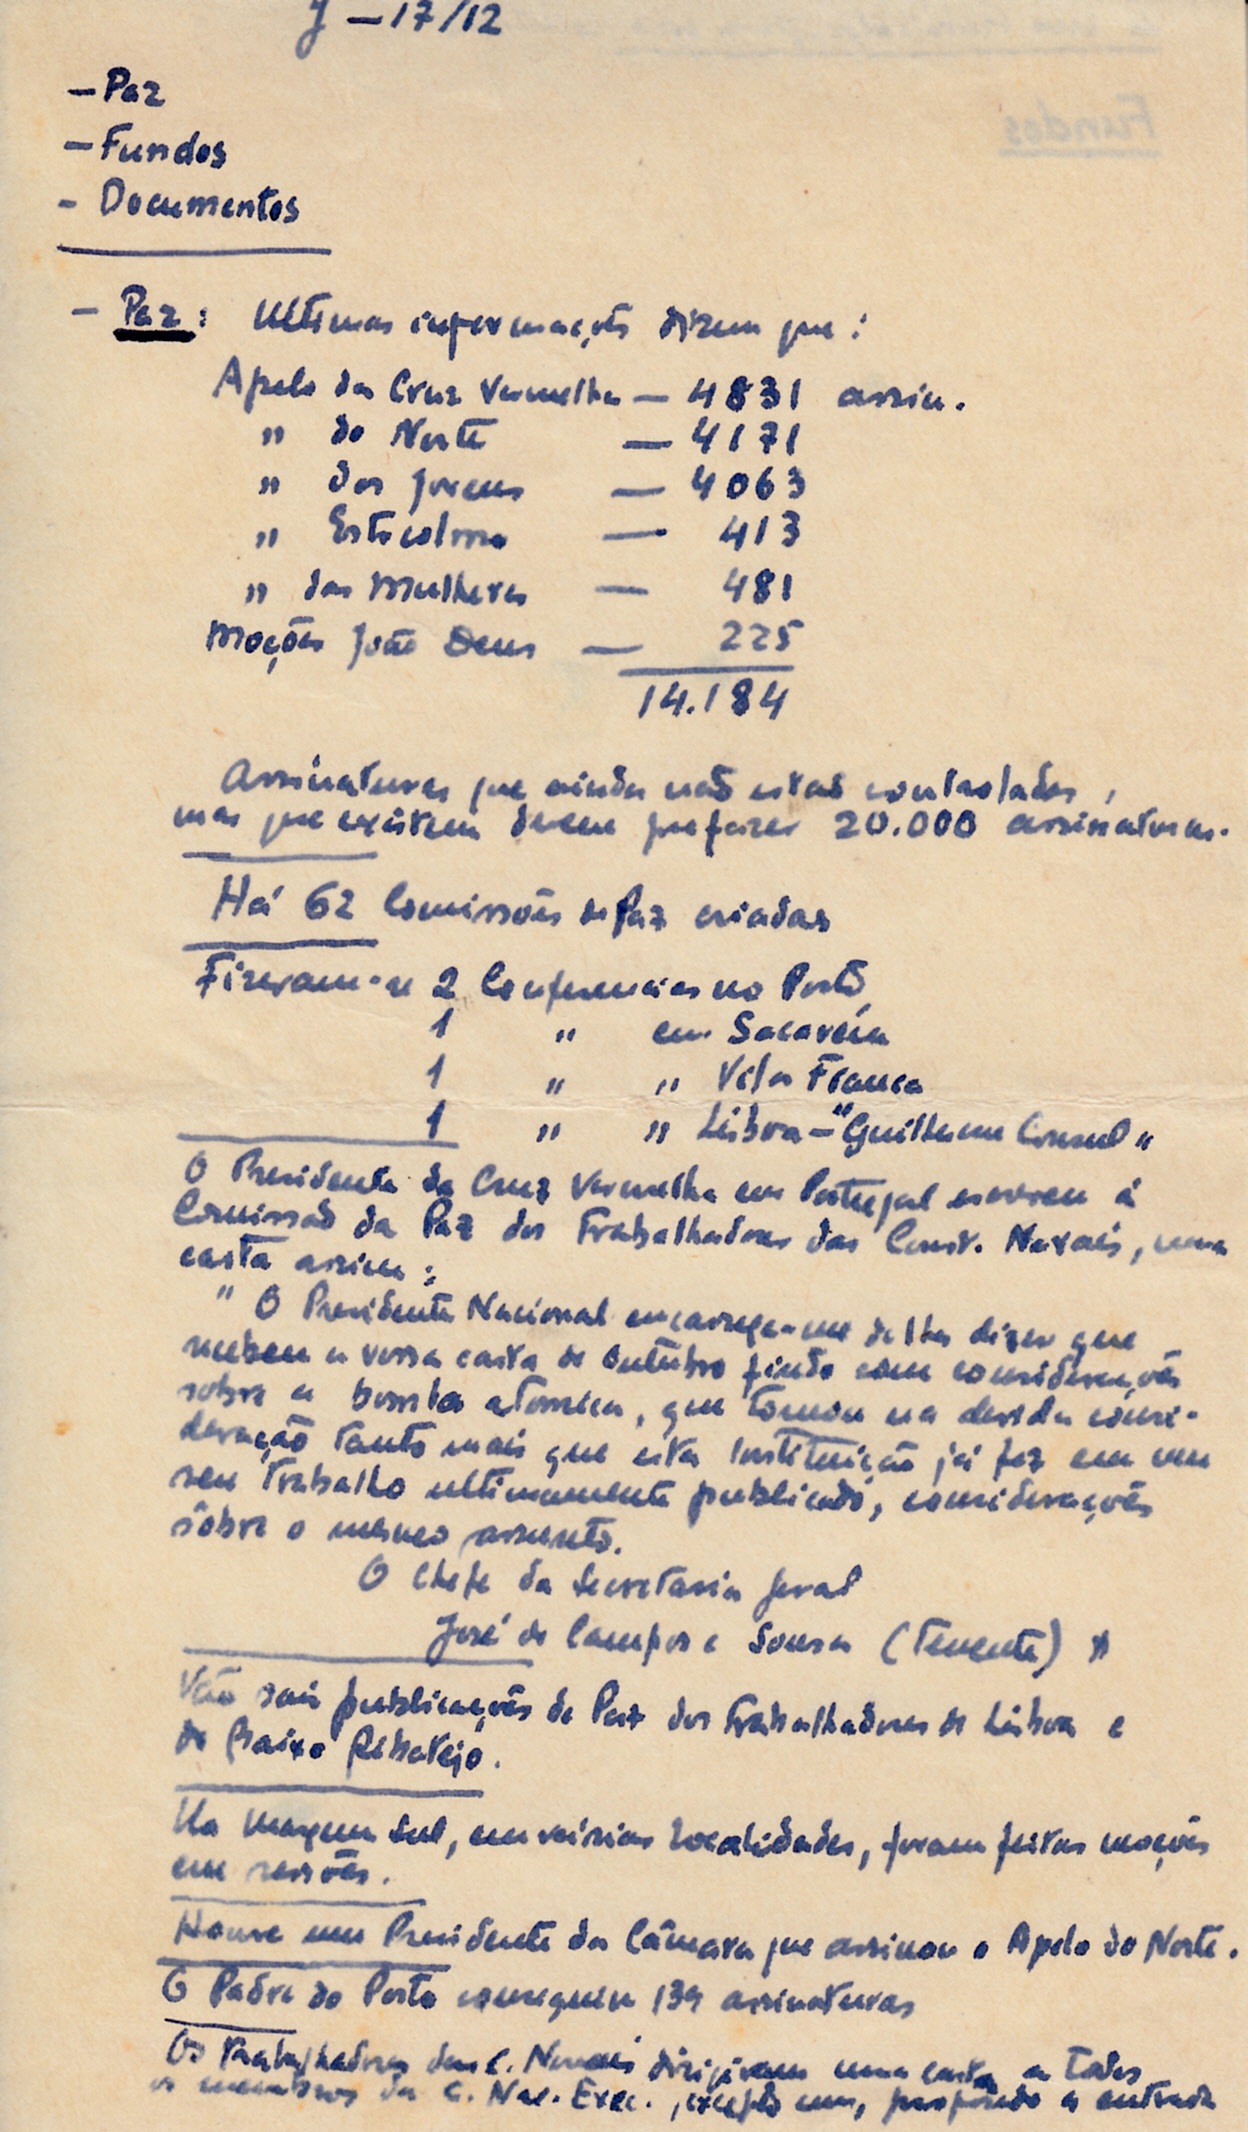 J — 17/12
— Paz
— Fundos
- Documentos
— Paz: Ultimas informações dizem que:
Apelo da Cruz Vermelha — 4831 assin.
" do Norte — 4171
" dos Jovens — 4063
" Estocolmo — 413
" das Mulheres — 481
Moções João Deus — 225
14.184
Assinaturas que ainda não estão controladas,
mas que existem devem prefazer 20.000 assinaturas.
Há 62 Comissões de Paz criadas
Fizeram-se 2 Conferencias no Porto
1 " em Sacavém
1 " " Vila Franca
1 " " Lisboa — "Guilherme Cossul"
O Presidente da Cruz Vermelha em Portugal escreveu á
Comissão da Paz dos Trabalhadores das Const. Navais, uma
carta assim:
" O Presidente Nacional encarrega-me de lhes dizer que
recebeu a vossa carta de Outubro findo com considerações
sobre a bomba atomica, que tomou na devida consi-
deração tanto mais que esta Instituição já fez em um
seu trabalho ultimamente publicado, considerações
sôbre o mesmo assunto.
O Chefe da Secretaria Geral
José de Campos e Sousa (Tenente) "
Vão sair publicações de Paz dos Trabalhadores de Lisboa e
do Baixo Ribatejo.
Na Margem Sul, em vairias localidades, foram feitas moções
em sessões.
Houve um Presidente da Câmara que assinou o Apelo do Norte.
O Padre do Porto conseguiu 139 assinaturas
Os Trabalhadores das C. Navais dirigiram uma carta a todos
os membros da C. Nac. Exec., excepto um, propondo a entrada
Fundos